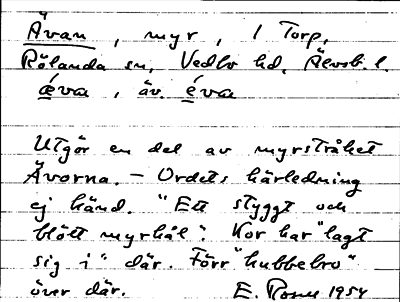 Ävan, myr, 1 Torp,
Rölanda sn, Vedbo hd, Älvsb. l.
ǽva, äv. éva
Utgör en del av myrstråket
Ävorna. – Ordets härledning
ej känd. "Ett styggt och
blött myrhål". Kor har "lagt
sig i" där. Förr "kubbebro"
över där. E. 1954